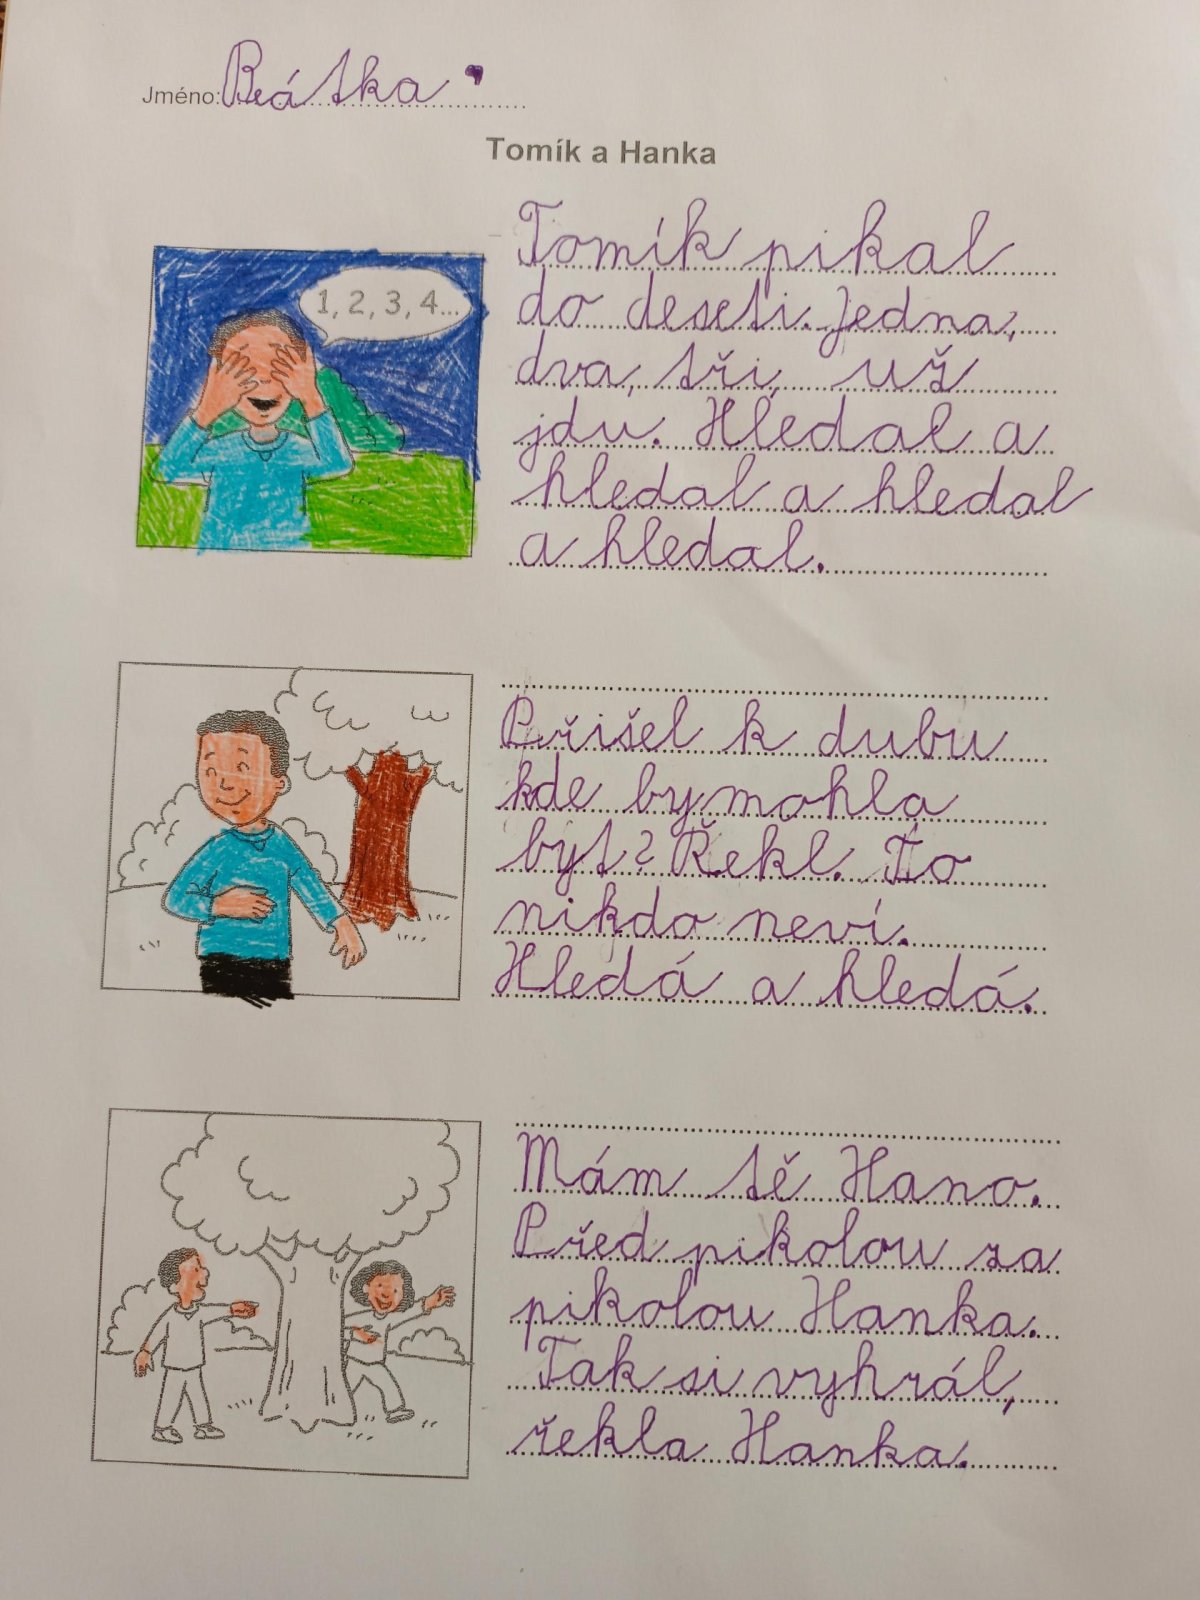 Jméno: Bátka
Tomík a Hanka
1, 2, 3, 4...
Tomík pikal
do deseti. Jedna,
dva, tři, už
jdu. Hledal a
hledal a hledal
a hledal.
Přišel k dubu
kde by mohla
být? Řekl. To
nikdo neví.
Hledá a hledá.
Mám tě Hano.
Před pikolou za
pikolou Hanka.
Tak si vyhrál,
řekla Hanka.